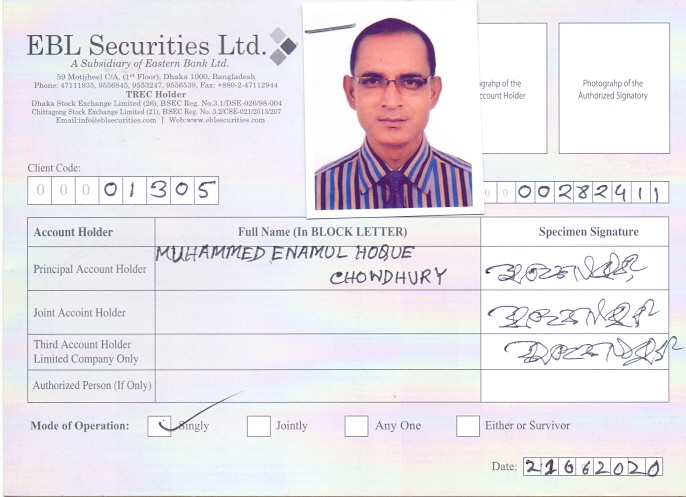 EBL Securities Ltd.
A Subsidiary of Eastern Bank Ltd.
59 Motijheel C/A, (1st Floor), Dhaka 1000, Bangladesh
Phone: 47111935, 9556845, 9553247, 9556539, Fax: +880-2-47112944
TREC Holder
Dhaka Stock Exchange Limited (26), BSEC Reg. No.3.1/DSE-026/98-004
Chittagong Stock Exchange Limited (21), BSEC Reg. No. 3.2/CSE-021/2013/207
Email:info@eblsecurities.com | Web:www.eblsecurities.com
ograhp of the
ccount Holder
Photograhp of the
Authorized Signatory
Client Code:
0 0 0 0 1 3 0 5
0 0 0 0 2 8 2 4 1 1
Account Holder Full Name (In BLOCK LETTER) Specimen Signature
Principal Account Holder MUHAMMED ENAMUL HOQUE
CHOWDHURY
Joint Accoint Holder
Third Account Holder
Limited Company Only
Authorized Person (If Only)
Mode of Operation: Singly Jointly Any One Either or Survivor
Date: 2 2020